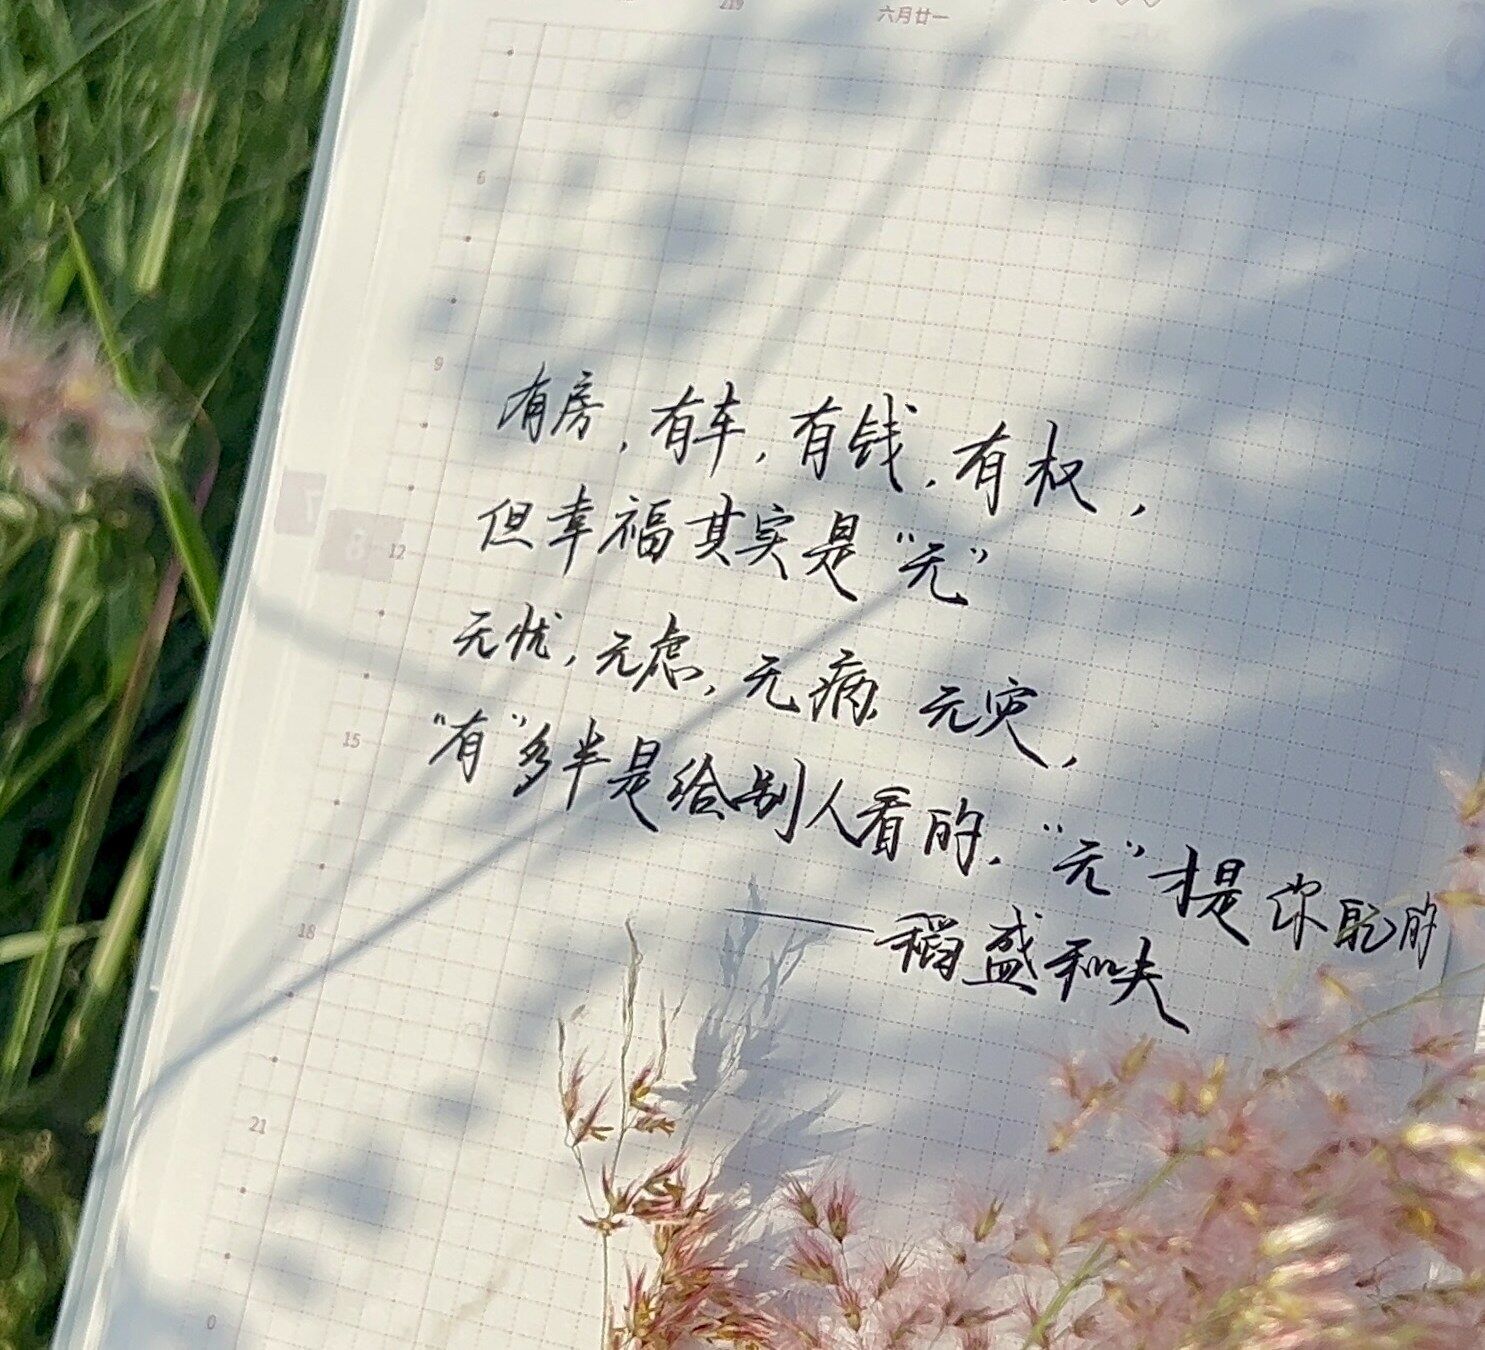 219
六月廿一
6
9
有房,有车,有钱,有权,
7
8
12
但幸福其实是“无”
无忧,无虑,无病,无灾,
15
“有”多半是给别人看的,“无”才是你自己的
18
——稻盛和夫
21
0